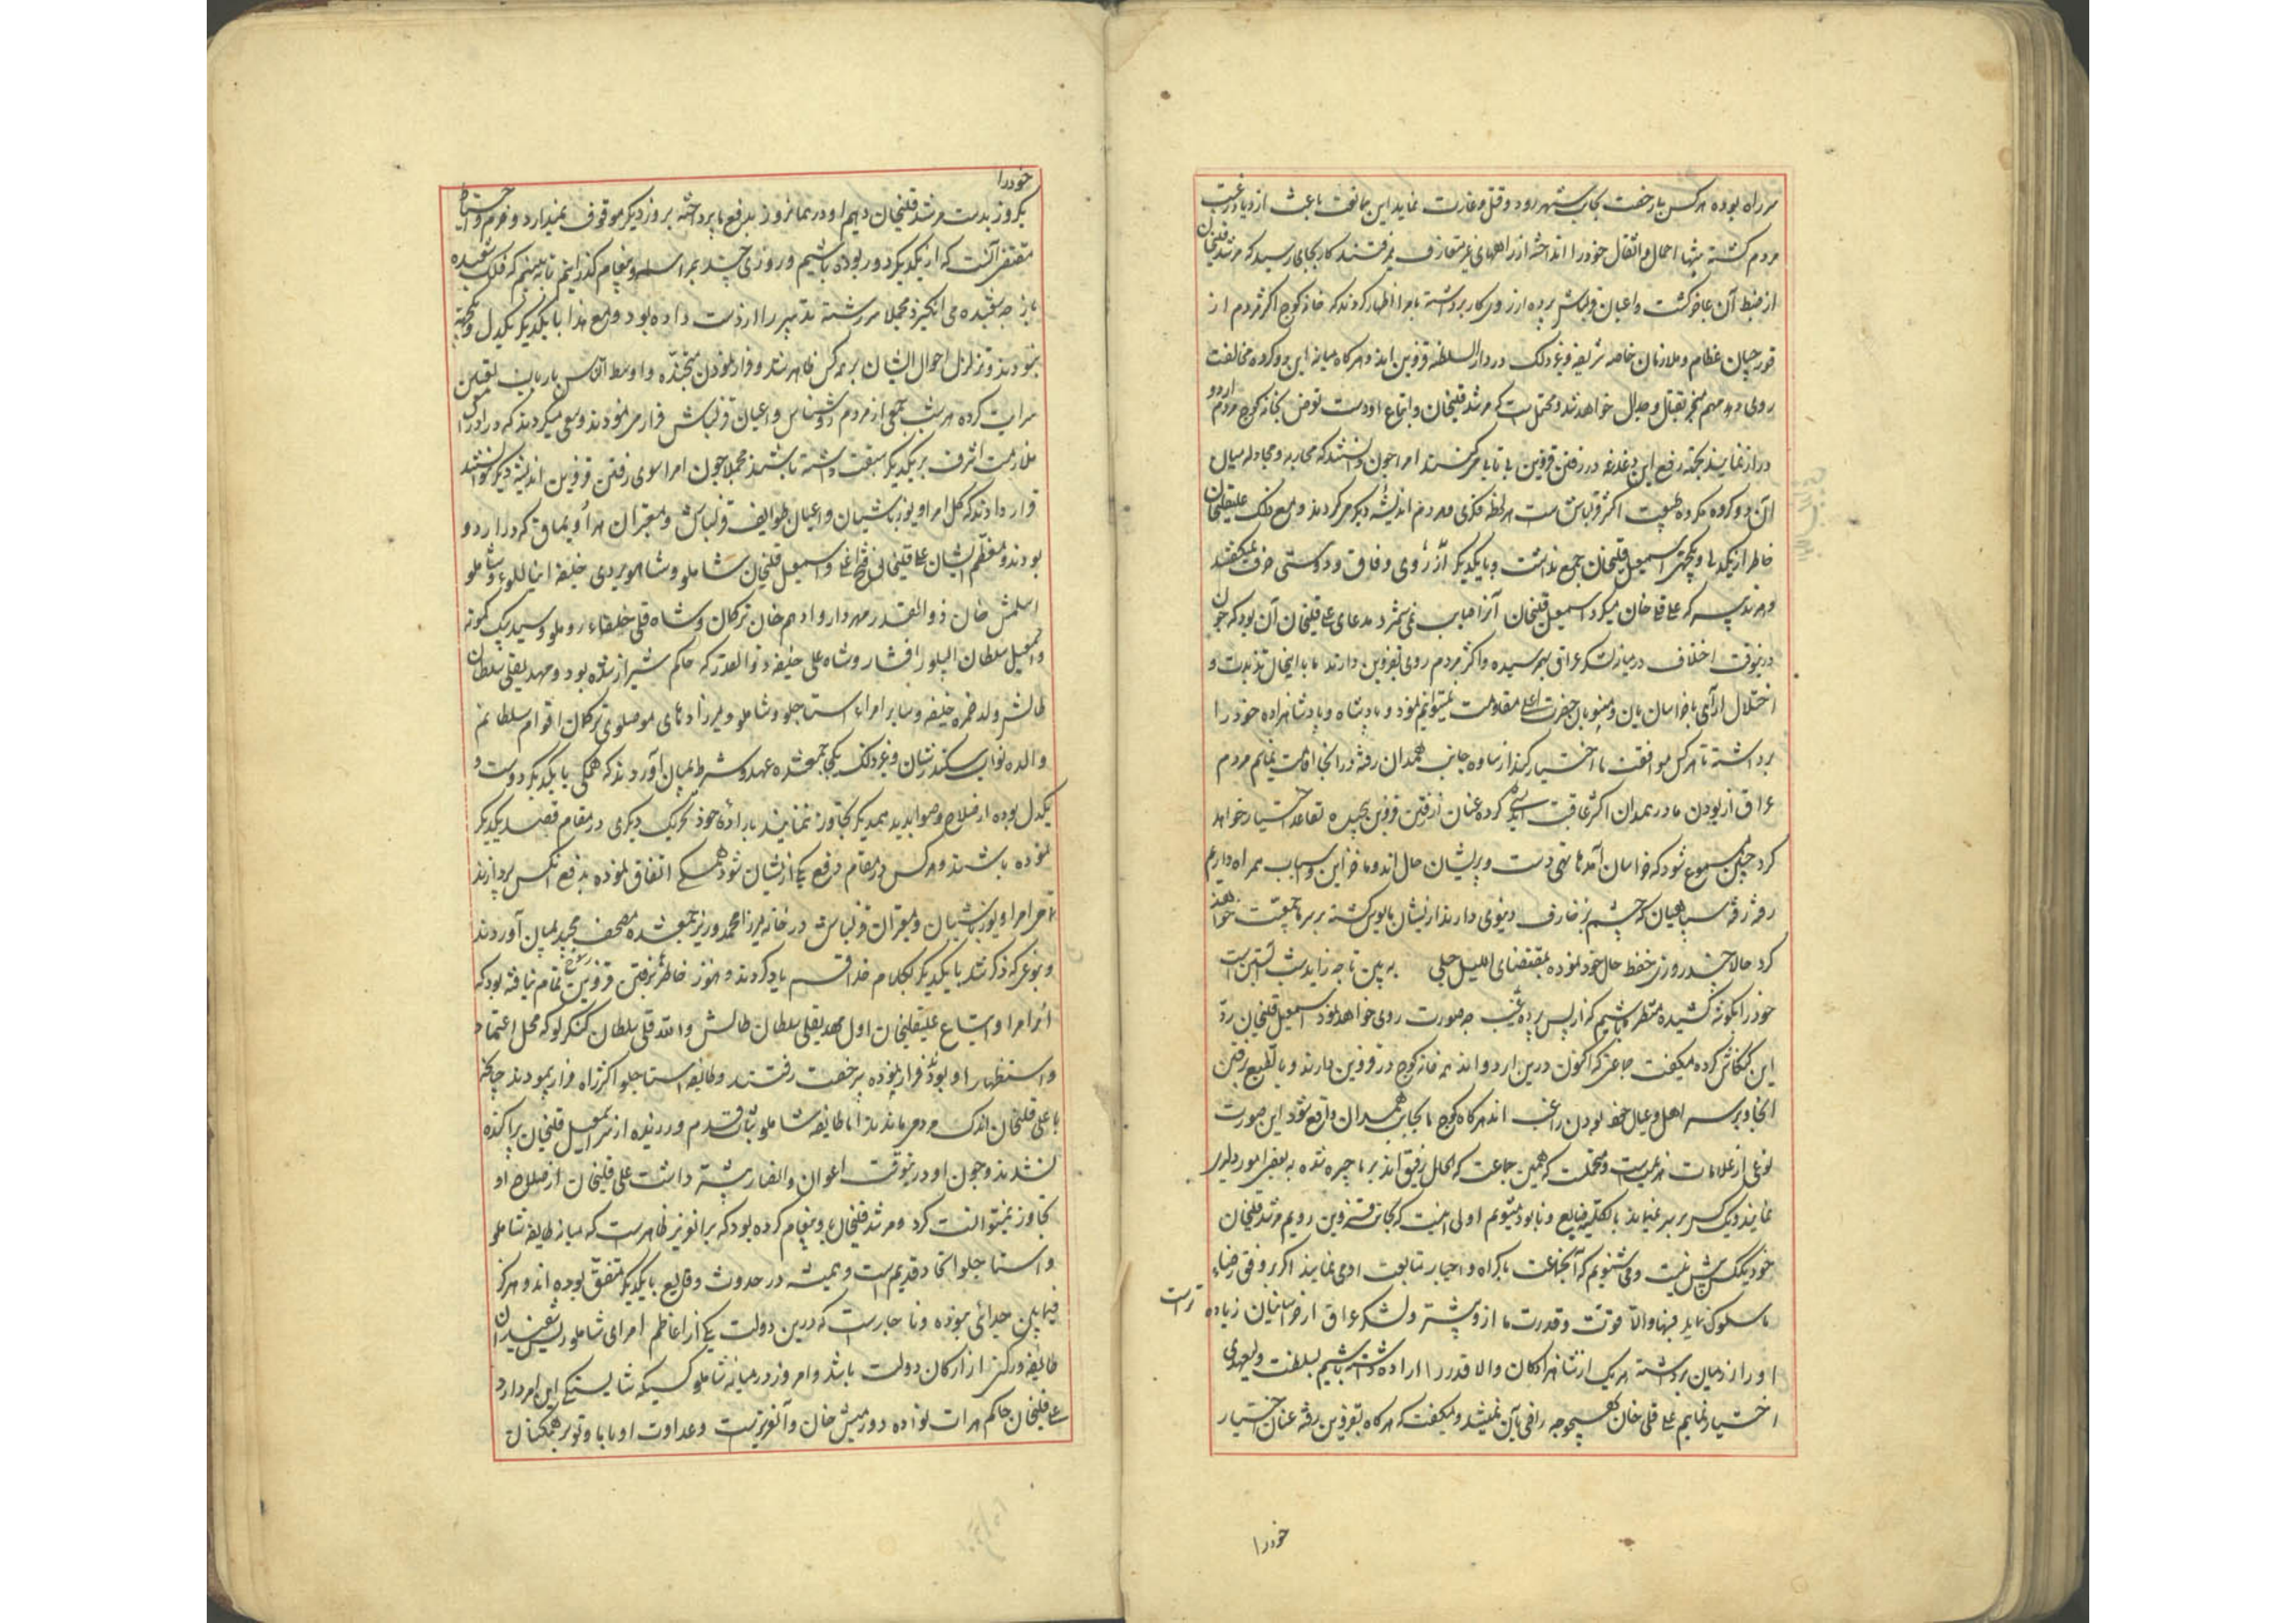 سر راه بوده هر کس بار رخصت بجانب شهر رود و قتل و غارت نماید این ممانعت باعث ازدیاد رغبت
مردم گشته شبها احمال و اثقال خود را انداخته از راههای غیر متعارف میرفتند کار بجای رسید که مرشد قلیخان
از ضبط آن عاجز گشت و اعیان قزلباش پرده از روی کار برداشته بامرا اظهار کردند که خانه کوج اکثر مردم از
قورچیان عظام و ملازمان خاصه شریفه و غیر ذلک در دار السلطنه قزوین اند و هرگاه میانه این دو کروه مخالفت
روی دهد مهم منجر بقتال و جدال خواهد شد و محتملست که مرشد قلیخان و اتباع او دست تعرض بخانه کوج مردم اردو
دراز نمایند بجهة رفع این دغدغه در رفتن قزوین بیتابی میکنند امرا چون دانستند که محاربه و مجادله میان
آن دو کروه مکروه طبیعت اکثر قزلباش است هر لحظه فکری و هر دم اندیشه دیکر میکردند و مع ذلک علیقلیخان
خاطر از یکدلی و یکجهتی اسمعیل قلیخان جمع نداشت و با یکدیکر از روی وفاق و دوستی حرف نمیکفتند
و هر تدبیر که علی قلی خان میکرد اسمعیل قلیخان آنرا صایب نمی شمرد مدعای علی قلیخان آن بود که چون
درینوقت اختلاف در میان لشکر عراق بهم رسیده و اکثر مردم روی بقزوین دارند ما با اینحال تذبذب و
اختلال آرای با خراسانیان و منسوبان حضرت اعلی مقاومت نمیتوانیم نمود و پادشاه و پادشاهزاده خود را
برداشته تا هر کس موافقت ما اختیار کند از ساوه جانب همدان رفته در آنجا اقامت نمایم مردم
عراق از بودن ما در همدان اکثر عاقبت اندیشی کرده عنان از رفتن قزوین پیچیده تقاعد اختیار خواهد
کرد چنین مسموع شود که خراسان آمدها تهی دست و پریشان حال اند و ما خزاین و اسباب همراه داریم
رفته رفته سپاهیان که چشم بزخارف دنیوی دارند از ایشان مایوس گشته بر سر ما جمعیت خواهند
کرد حالا چند روزی حفظ حال خود نموده بمقتضای اللیل حبلی به بین تا چه زاید شب آبستن است
خود را بکوشه کشیده منتظر می باشیم که از پس پرده غیب چه صورت روی خواهد نمود اسمعیل قلیخان رد
این کنکاش کرده میکفت جماعتی که اکنون درین اردو اند همه خانه کوج در قزوین دارند و بالطبع برفتن
آنجا و بر سر اهل و عیال خود بودن راغب اند هرگاه کوج ما بجانب همدان واقع شود این صورت
نوعی از علامات هزیمت است و محتملست که همین جماعت که الحال رفیق اند بر ما چیره شده به بعضی امور دلیری
نمایند و یک کس بر سر نمیماند بالکلیه ضایع و نابود میشویم اولی اینست که بجانب قزوین رویم مرشد قلیخان
خود یککس بیش نیست و می شنویم که آنجماعت باکراه و اجبار متابعت او می نمایند اگر بر وفق رضاء
ما سلوک نماید فبها و الا قوت و قدرت ما ازو بیشتر و لشکر عراق از خراسانیان زیاده تر است
او را از میان برداشته هر یک از شاهزادکان والا قدر را اراده داشته باشیم بسلطنت و ولیعهدی
اختیار نمایم علی قلی خان بهیچوجه راضی بآن نمیشد و میکفت که هرگاه بقزوین رفته عنان اختیار
خود را
خود را
یکروز بدست مرشد قلیخان دهیم او در همانروز بدفع ما پرداخته بروز دیکر موقوف نمیدارد و حزم و احتیاط
مقتضی آنست که از یکدیکر دور بوده باشیم و روزی چند بمراسله و پیغام گذرانیم تا به بینیم که فلک شعبده
باز چه شعبده می انکیزد مجملا سر رشته تدبیر را از دست داده بود و مع هذا با یکدیکر یکدل و یکجهة
نبودند و تزلزل احوال ایشان بر همه کس ظاهر شد و فرار نمودن
سرایت کرده هر شب جمعی از مردم روشناس و اعیان قزلباش فرار می نمودند و سعی میکردند که در ادراک
ملازمت اشرف بر یکدیکر سبقت داشته باشند مجملا چون امرا سوی رفتن قزوین اندیشه دیکر نتوانستند
قرار دادند که کل امرا و یوزباشیان و اعیان طوایف قزلباش و معتبران هر اویماق که در اردو
بودند و معظم ایشان علی قلیخان فتح اغلی و اسمعیل قلیخان شاملو و شاهویردی خلیفه اینالوء شاملو
اسلمش خان ذو القدر مهردار و ادهم خان ترکمان و شاه قلی خلفاء روملو و سید بیک کمونه
و اسمعیل سلطان الپلو افشار و شاه علی خلیفه ذو القدر که حاکم شیراز شده بود و مهدیقلی سلطان
طالش ولد حمزه خلیفه و سایر امراء استاجلو و شاملو و میرزادهای موصلوی ترکمان اقوام سلطانم
والده نواب سکندر شان و غیر ذلک یکجا جمع شده عهد و شرط بمیان آوردند که همکی با یکدیکر دوست و
یکدل بوده از صلاح و صوابدید همدیکر تجاوز ننمایند باراده خود تحریک دیکری در مقام قصد یکدیکر
نبوده باشند و هر کس در مقام دفع یکی از ایشان شود همکی اتفاق نموده بدفع آنکس پردازند
آخر امرا و یوزباشیان و معتبران قزلباش در خانه میرزا محمد وزیر جمع شده مصحف مجید بمیان آوردند
و بنوعی که ذکر شد با یکدیکر بکلام خدا قسم یاد کردند و هنوز خاطرها برفتن قزوین تمام نیافته بود که
از امرا و اتباع علیقلیخان اول مهدیقلی سلطان طالش و الله قلی سلطان کنکرلو که محل اعتماد
و استظهار او بود فرار نموده بی رخصت رفتند و طایفه استاجلو اکثر راه فرار پیمودند چنانچه
با علی قلیخان اندک مردمی ماندند اما طایفه شاملو ثبات قدم ورزیده از سر اسمعیل قلیخان پراکنده
نشدند و چون او درینوقت اعوان و انصار بیشتر داشت علی قلیخان از صلاح او
تجاوز نمیتوانست کرد و مرشد قلیخان باو پیغام کرده بود که بر آنعزیز ظاهرست که میانه طایفه شاملو
و استاجلو اتحاد قدیم است و همیشه در حدوث وقایع با یکدیکر متفق بوده اند و هرکز
فیمابین جدائی نبوده و ناچارست که درین دولت یکی از اعاظم امرای شاملو ریش سفید ان
طایفه و رکنی از ارکان دولت باشد و امروز در میانه شاملو کسیکه شایستکی این امر دارد
علی قلیخان حاکم هرات نواده دورمیش خان و آنعزیزست و عداوت او با ما و تو بر همکنان